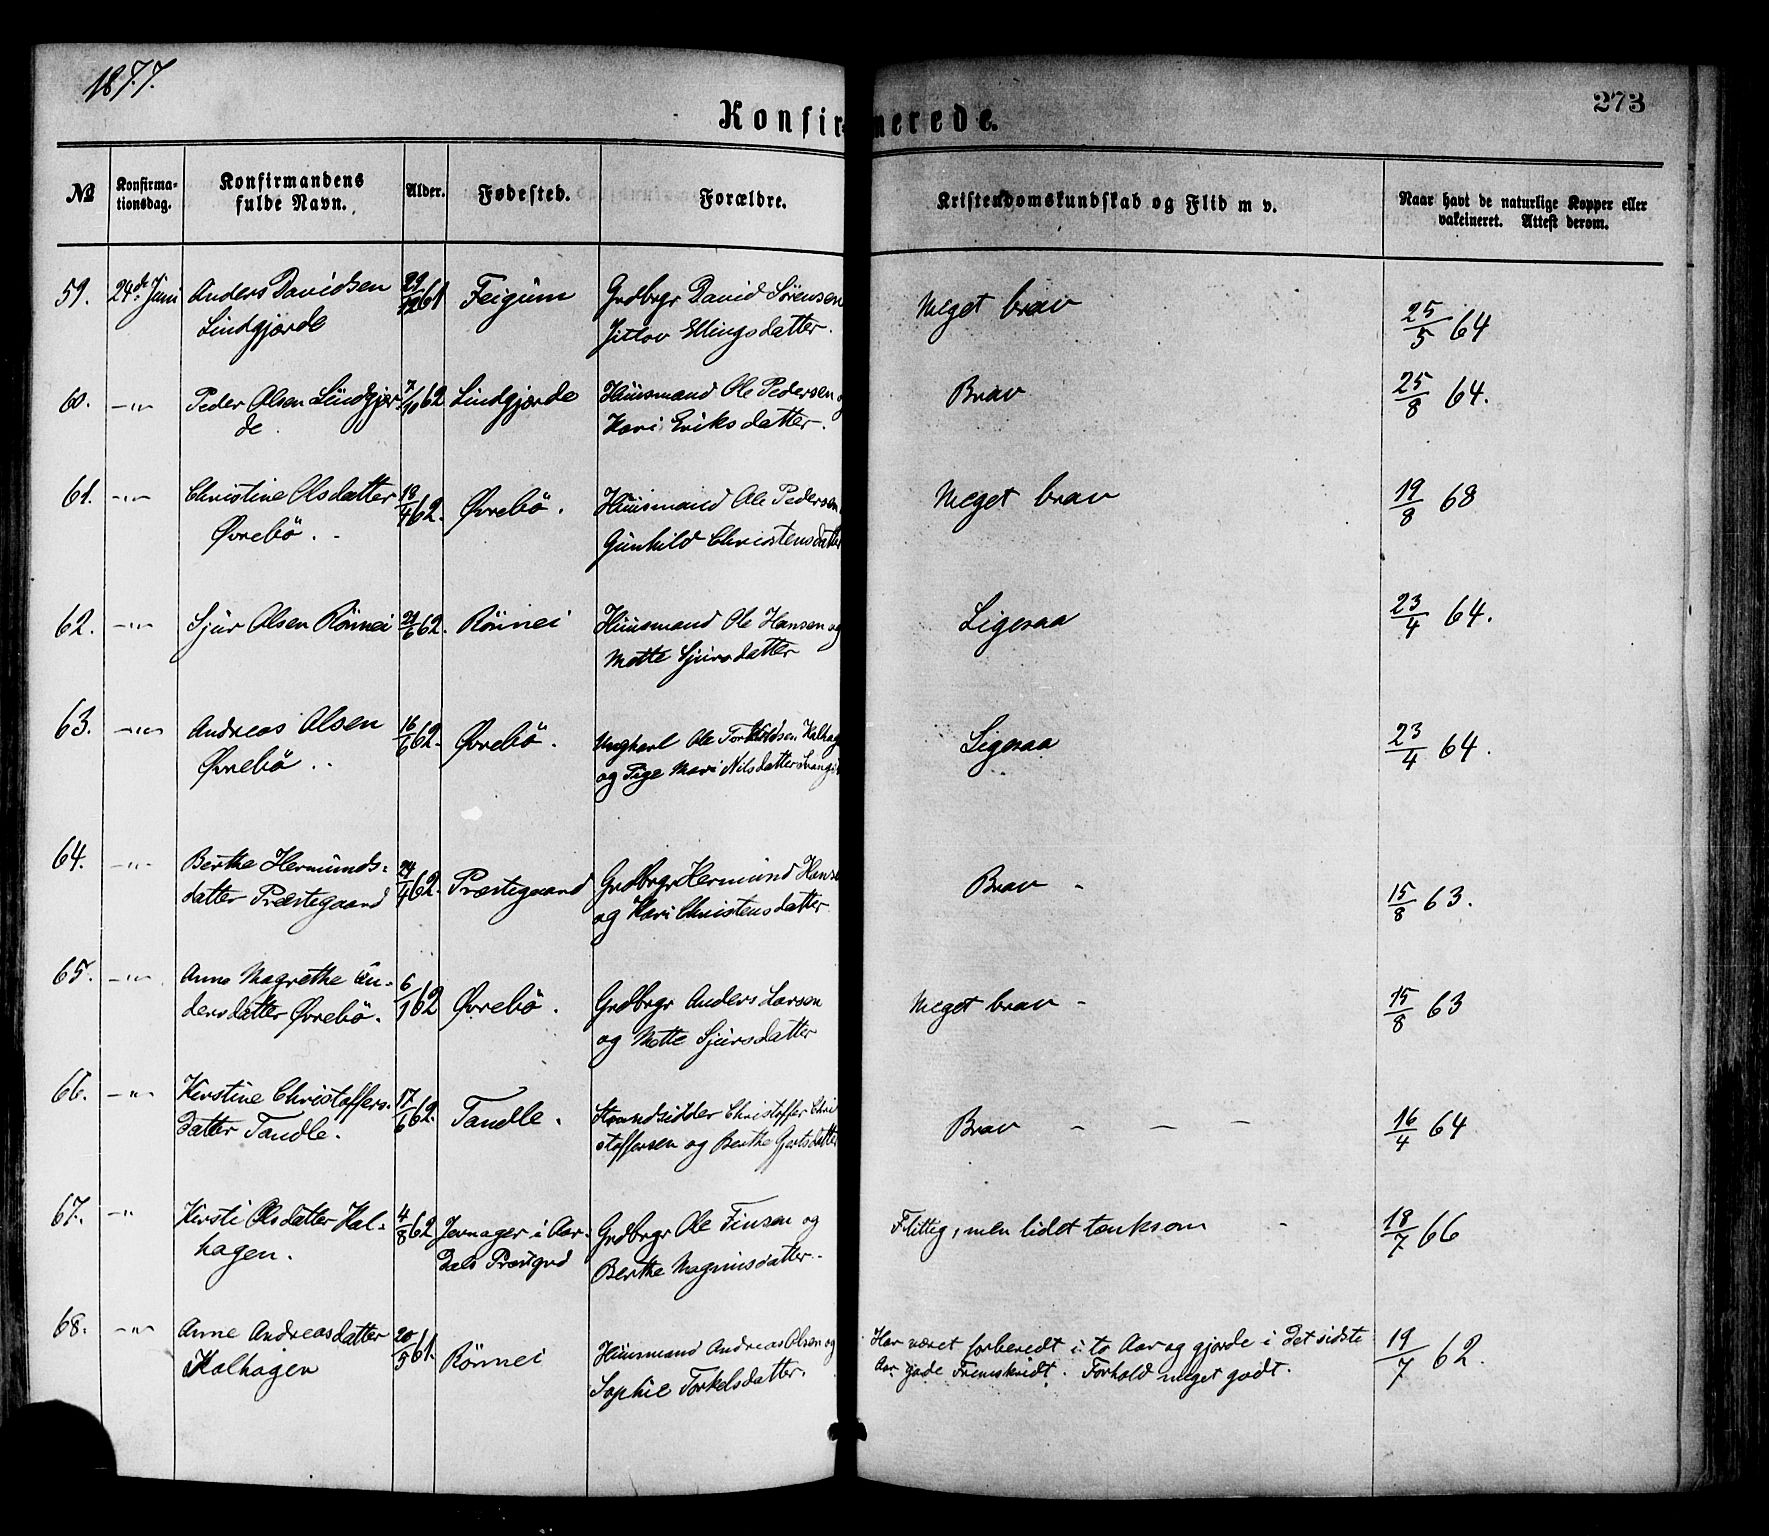 1877.
273
Konfirmerede.
№
Konfirma-
tionsdag.
Konfirmandens
fulde Navn.
Alder.
Fødested.
Forældre.
Kristendomskundskab og Flid m v.
Naar havt de naturlige Kopper eller
vakcineret. Attest derom.
59. 24de Juni Anders Davidsen 29/12 61 Feigum Grdbrgr David Sørensen Meget brav 25/5 64
Lindgjærde Jitlov Ellingsdatter.
60. -"- Peder Olsen Lindgjær- 7/10 62 Lindgjærde Huusmand Ole Pedersen og Brav 25/8 64.
de. Kari Eriksdatter.
61. -"- Christine Olsdatter 18/4 62. Øvrebö. Huusmand Ole Pedersen Meget brav 19/8 68
Øvrebö. Gunhild Christensdatter
62. -"- Sjur Olsen Rönnei 21/6 62. Rönnei Huusmand Ole Hansen og Ligesaa 23/4 64.
Mette Sjursdatter
63. -"- Andreas Olsen 16/6 62. Øvrebö. Ungkarl Ole Torkildsen Kalhag Ligesaa 23/4 64.
Øvrebö.. og Pige Mari Nilsdatter
64. -"- Berthe Hermunds= 24/4 62. Præstegaard Grdbrgr Hermund Hanse Brav - 15/8 63.
datter Præstegaard og Kari Christensdatter
65. -"- Anna Magrethe An- 6/1 62 Øvrebö. Grdbrgr Anders Larsen Meget brav - 15/8 63
dersdatter Øvrebö. og Mette Sjursdatter
66. -"- Kirstine Christoffers- 17/6 62. Tandle. Strandsidder Christoffer Chri Brav - - - 16/4 64
datter Tandle. stoffersen og Berthe Gjertsdatter
67. -"- Kirsti Olsdatter Kal- 4/8 62 Jernager i Aar- Grdbrgr Ole Finsen og Flittig, men lidet tænksom - 18/7 66
hagen. dals Præstgd Berthe Magnusdatter.
68. -"- Anne Andreasdatter 20/5 61. Rönnei Huusmand Andreas Olsen og Har været forberedt i to Aar og gjorde i det sidste 19/7 62.
Kalhagen Sophie Torkelsdatter. Aar gode Fremskridt. Forhold meget godt.